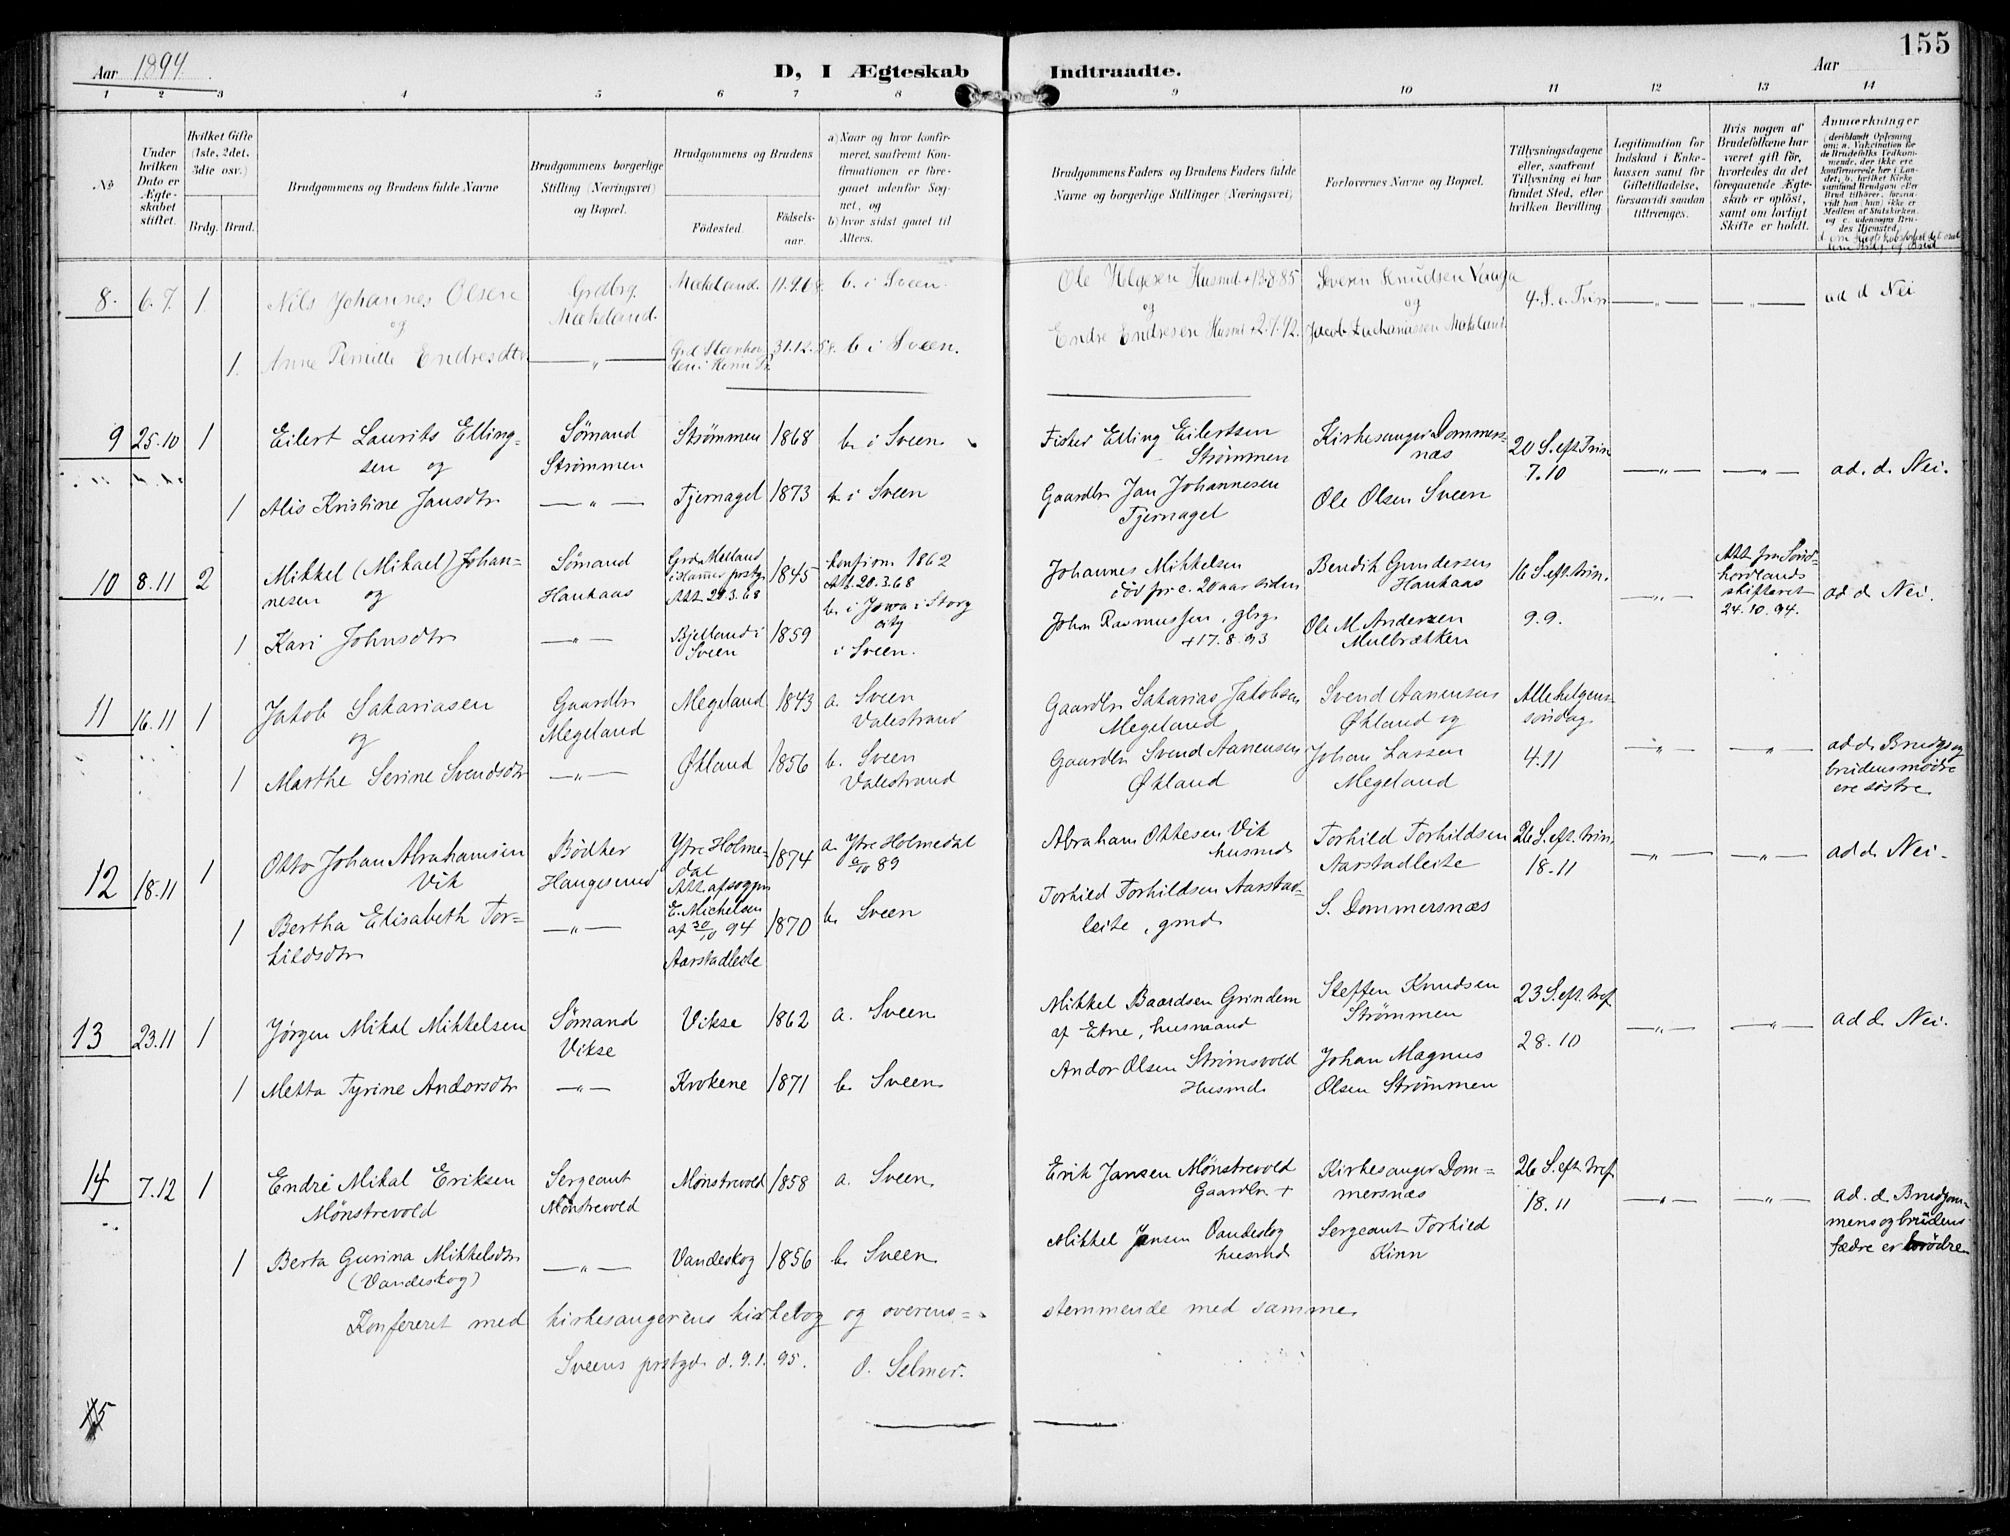 155
Aar 1894.
D, I Ægteskab Indtraadte.
Aar
1 2 3 4 5 6 7 8 9 10 11 12 13 14
No
Under hvilken Dato er Ægteskabet stiftet.
Hvilket Gifte (1ste, 2det, 3die osv.)
Brdg. Brud.
Brudgommens og Brudens fulde Navne
Brudgommens borgerlige Stilling (Næringsvei) og Bopæl.
Brudgommens og Brudens
Fødested.
Fødselsaar.
a) Naar og hvor konfirmeret, saafremt Konfirmationen er foregaaet udenfor Sognet, og
b) hvor sidst gaaet til Alters.
Brudgommens Faders og Brudens Faders fulde Navne og borgerlige Stillinger (Næringsvei)
Forlovernes Navne og Bopæl.
Tillysningsdagene eller, saafremt Tillysning ei har fundet Sted, efter hvilken Bevilling.
Legitimation for Indskud i Enkekassen samt for Giftetilladelse, forsaavidt saadan tiltrænges.
Hvis nogen af Brudefolkene har været gift før, hvorledes da det foregaaende Ægteskab er opløst, samt om lovligt Skifte er holdt.
Anmærkninger
8. 6.7. 1 Nils Johannes Olsen
og
Grdbrg. Mækeland.
Mækeland. 11.9.68. b. i Sveen.
Ole Helgesen Husmd + 13.8.85
og
Severin Knudsen Vaaga
og
4. S. e. Trin
ad d Nei
1. Anne Pernille Endresdtr
31.12.58. b i Sveen.
Endre Endresen Husmd + 2.7.92.
Jacob Zachariassen Mækeland
9 25.10 1 Eilert Laurits Ellingsen og
Sømand Strømmen
Strømmen 1868 b. i Sveen
Fisker Elling Eilertsen Strømmen
Kirkesanger Dommersnæs
20 S. eft. Trin 7.10
ad. d. Nei.
1 Alis Kristine Jansdtr
Tjernagel 1873 b. i Sveen
Gaardbr Jan Johannesen Tjernagel
Ole Olsen Sveen
10 8.11 2 Mikkel (Mikael) Johannesen og
Sømand Haukaas
1845
Konfirm. 1862
Att. 20.3.68
b. i Jowa i Story city
Johannes Mikkelsen
død for c. 20 aar siden
Bendik Gundersen Haukaas
16 S. eft. trin. 9.9.
Att. fra Søndhordlands skifteret 24.10.94.
ad d Nei.
1 Kari Johnsdtr
Bjelland i Sveen 1859 i Sveen.
John Rasmussen, gbrg. +17.8.93
Ole M. Andersen Mulbrækken
11 16.11 1 Jakob Sakariasen
og
Gaardbr Megeland
Megeland 1843 a. Sveen Valestrand
Gaardbr Sakarias Jakobsen Megeland
Svend Aanensen Økland og
Allehelgenssøndag 4.11
ad d. Brudgs og brudens mødre ere søstre
1 Marthe Serine Svendsdtr
Økland 1856 b. Sveen Valestrand
Gaardbr Svend Aanensen Økland
Johan Larsen Megeland
12 18.11 1 Otto Johan Abrahamsen Vik
Bødker Haugesund
Ytre Holmedal
Att. af sogpr. E. Michelsen af 30/10 94
1874 a. Ytre Holmedal
Abraham Ottesen Vik husmd
Torkild Torkildsen Aarstadleite
26 S. eft. trin. 18.11
ad d. Nei.
1 Bertha Elisabeth Torkildsdtr
Aarstadleite
1870 b. Sveen
Torkild Torkildsen Aarstadleite, gmd
S. Dommersnæs
13 23.11 1 Jørgen Mikal Mikkelsen
Sømand Vikse
Vikse 1862 a. Sveen
Mikkel Baardsen Grindem af Etne, husmand
Steffen Knudsen Strømmen
23 S. eft. tref. 28.10
ad d. Nei.
1 Metta Tyrine Andorsdtr
Krokene 1871 b. Sveen
Andor Olsen Strømsvold Husmd
Johan Magnus Olsen Strømmen
14 7.12 1 Endre Mikal Eriksen Mønstrevold
Sergeant Mønstrevold
Mønstrevold 1858 a. Sveen
Erik Jansen Mønstrevold Gaardbr +
Kirkesanger Dommersnæs
26 S. eft. tref. 18.11
ad. d. Brudgommens og brudens fædre er brødre
1 Berta Gurina Mikkelsdtr (Vandeskog)
Vandeskog 1856 b. Sveen
Mikkel Jansen Vandeskog husmd
Sergeant Torkild Kinn
Konfereret med kirkesangerens kirkebog og overensstemmende med samme
Sveens prstgd. d. 9.1.95. O. Selmer.
15